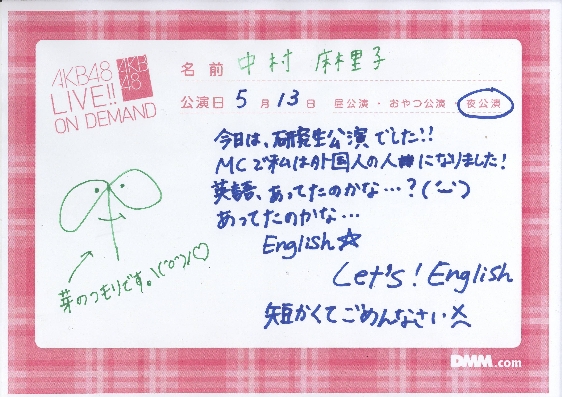 AKB48
LIVE!!
ON DEMAND
AKB
48
名前 中村 麻里子
公演日 5月13日 昼公演・おやつ公演・夜公演
今日は、研究生公演でした!!
MCで私は外国人の人になりました!
英語、あってたのかな…?(・⌣・)
あってたのかな…
English☆
Let's! English
短かくてごめんなさい><
芽のつもりです。\(^o^)/♡
DMM.com